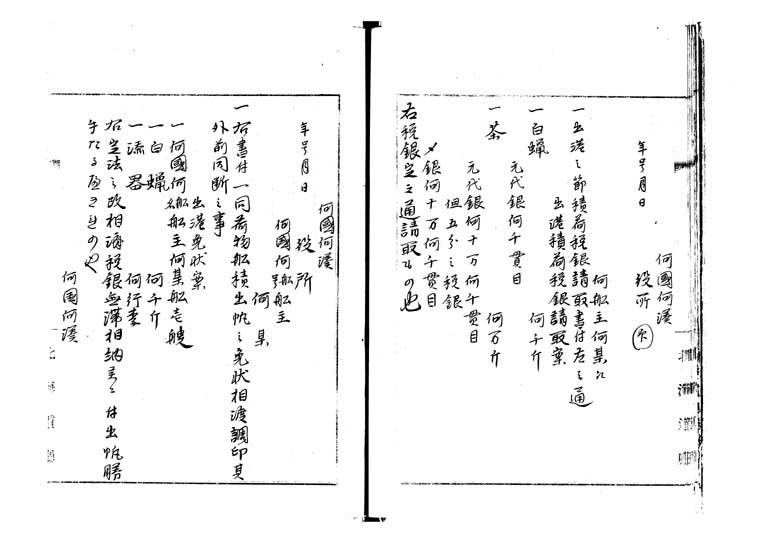 年号月日
何國何湊
役所 印
何船主何某江
一出港之節積荷税銀請取書付左之通
出港積荷税銀請取案
一白蝋 何千斤
元代銀何千貫目
一茶 何万斤
元代銀何十万何千貫目
但五分之税銀
〆銀何十万何千貫目
右税銀定之通請取もの也
年号月日
何國何湊
役所
何國何号船船主
何某
一右書付一同荷物船積出帆之免状相渡調印其
外前同断之事
出港免状案
一何國何船船主何某船壱艘
一白蝋 何千斤
一漆器 何行李
右定法之改相済税銀無滞相納候ニ付出帆勝
手たるべきもの也
何国何湊